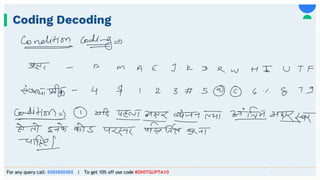 Coding Decoding
Condition Coding ⇒
अक्षर - P M A E J K D R W H I U T F
संख्या/प्रतीक - 4 $ 1 2 3 # 5 @ © 6 % 8 7 9
Condition ⇒ ① यदि पहला अक्षर व्यंजन तथा अंतिम अक्षर स्वर
हो तो इनके कोड परस्पर परिवर्तित होना
चाहिए।
For any query call: 8585858585 | To get 10% off use code ROHITGUPTA10